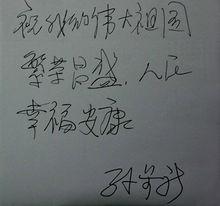 祝我们伟大祖国
繁荣昌盛，人民
幸福安康